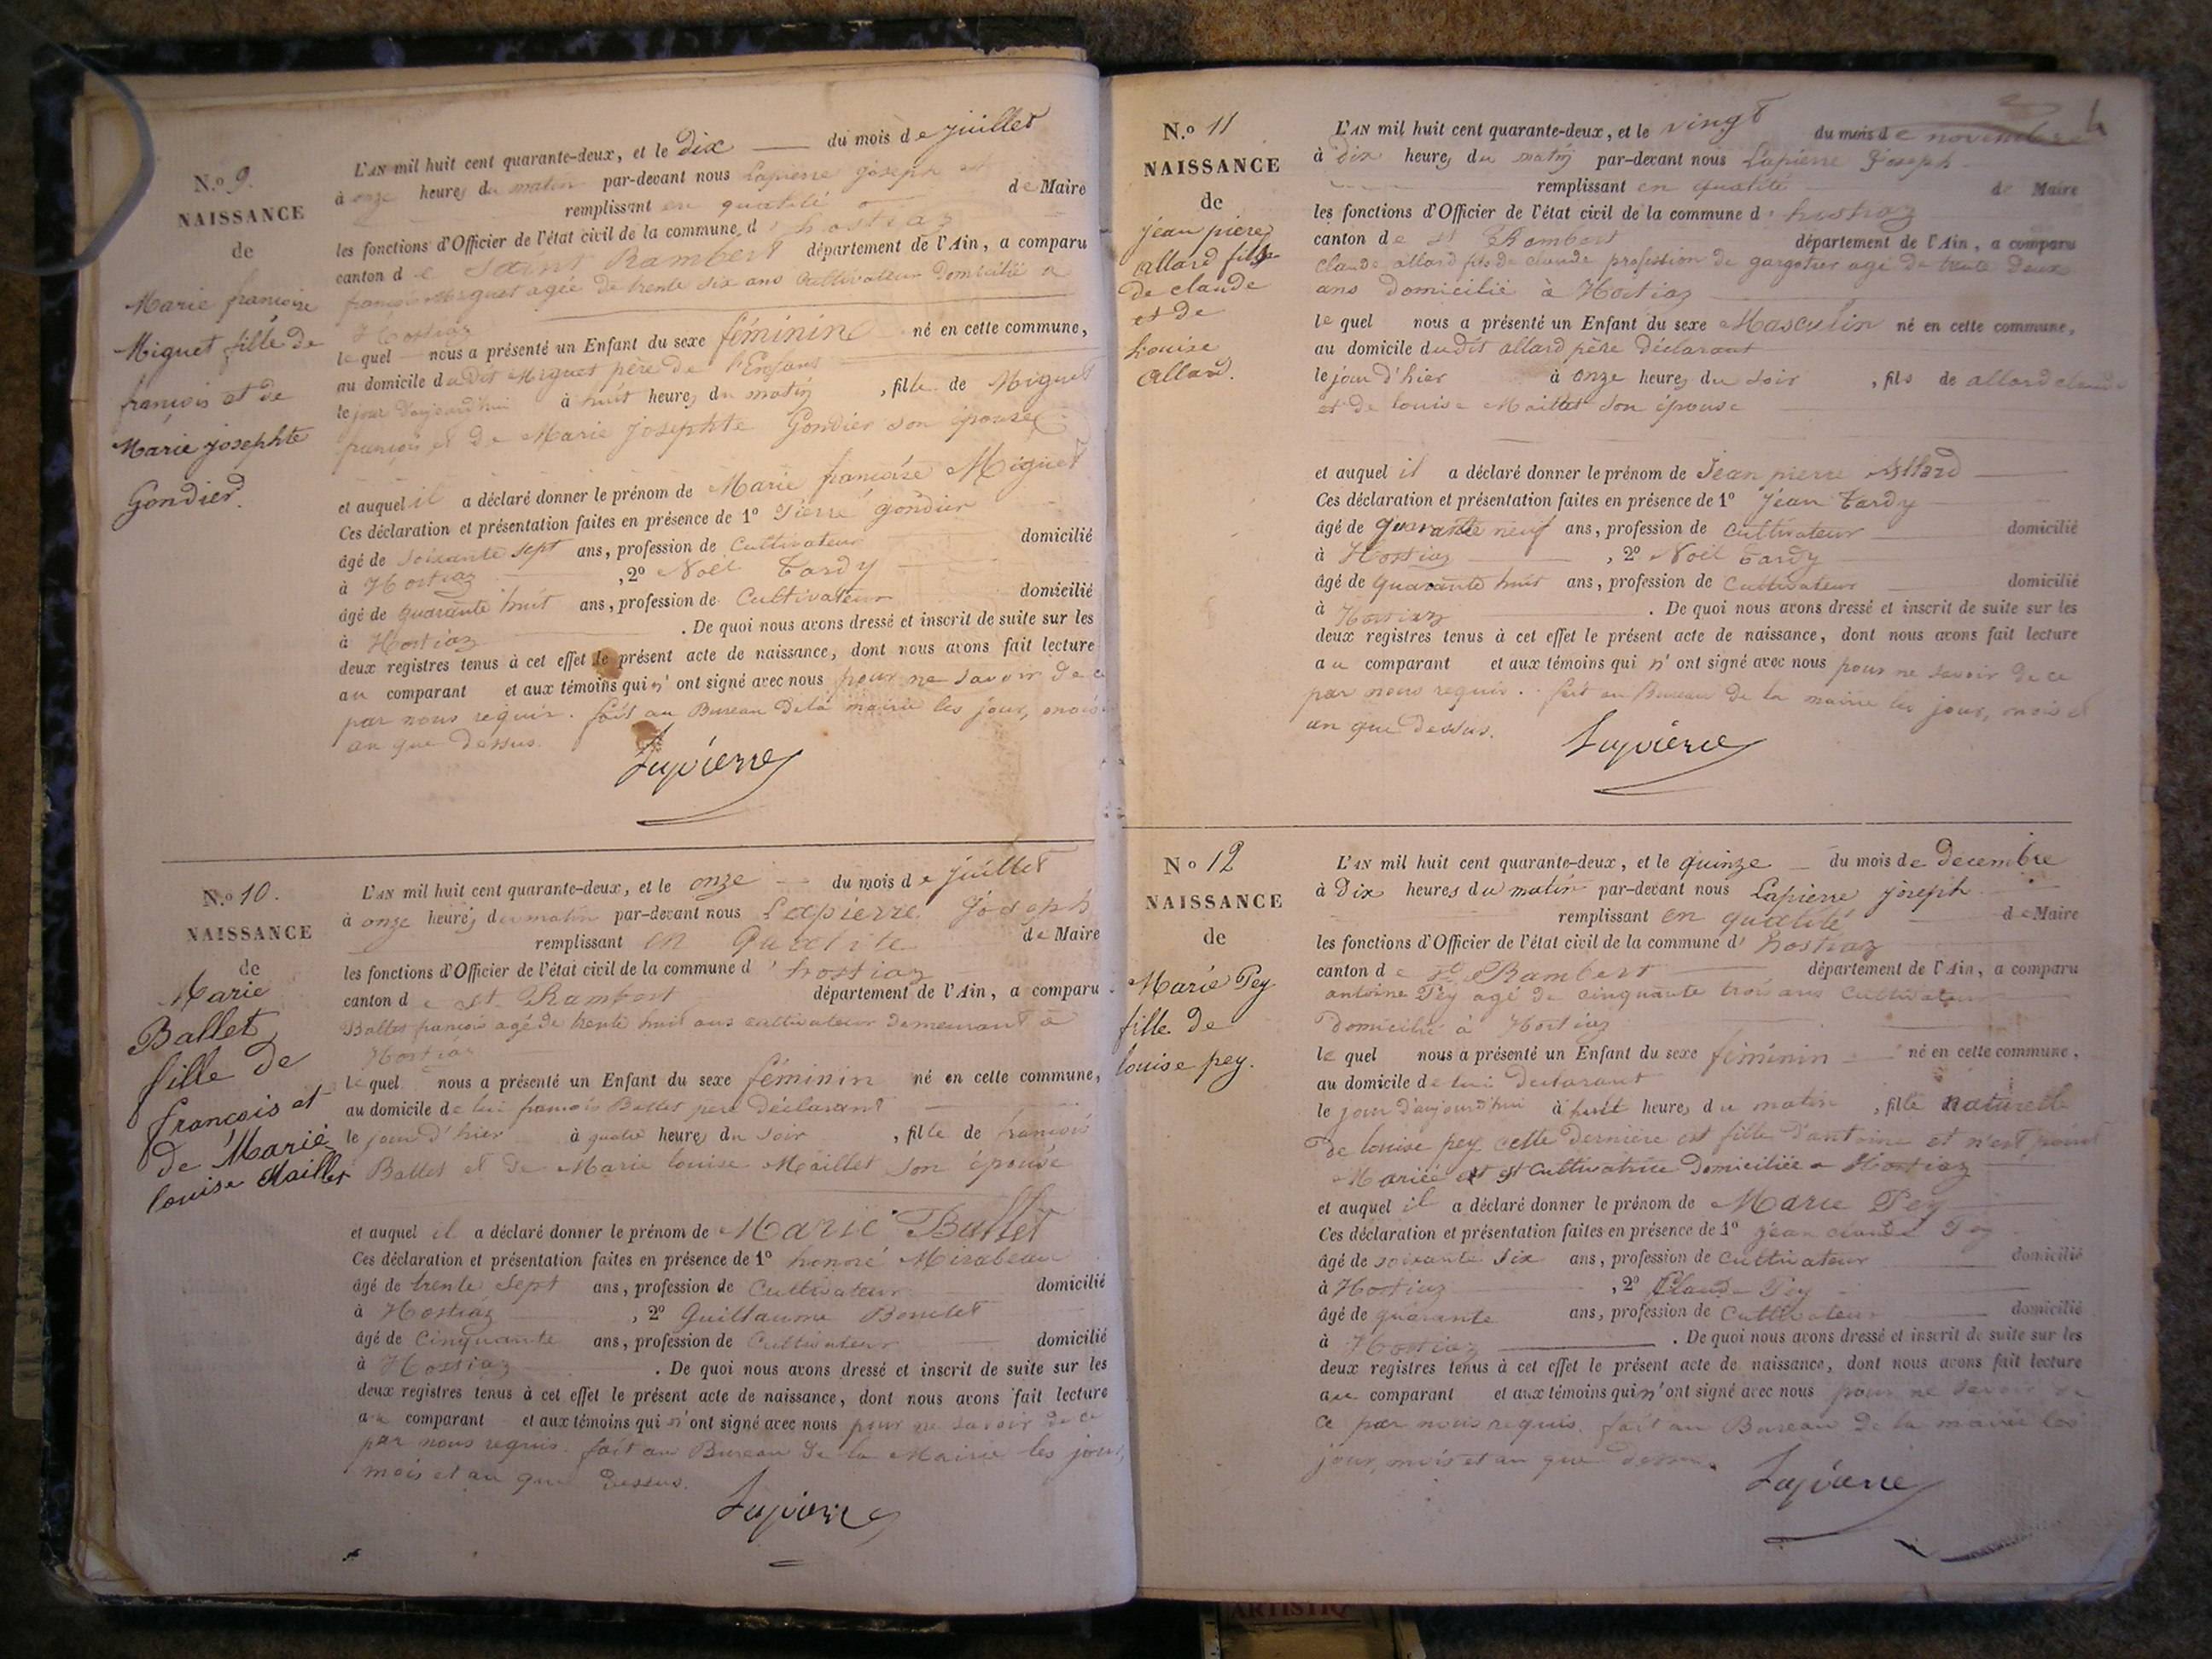 N.º 9.
NAISSANCE
de
Marie françoise
Miguet fille de
françois et de
Marie josephte
Gondier.
L'AN mil huit cent quarante-deux, et le Dix du mois de juillet
à onze heures du matin par-devant nous Lapierre joseph
remplissant en qualité de Maire
les fonctions d'Officier de l'état civil de la commune d'hostiaz
canton de Saint Rambert département de l'Ain, a comparu
françois Miguet agée de trente six ans Cultivateur Domicilié a
Hostiaz
lequel nous a présenté un Enfant du sexe féminin né en cette commune,
au domicile dudit Miguet père de l'Enfant
le jour d'aujourd'hui à huit heures du matin, fille de Miguet
françois et de Marie josephte Gondier son épouse
et auquel il a déclaré donner le prénom de Marie françoise Miguet
Ces déclaration et présentation faites en présence de 1º Pierre gondier
âgé de soixante sept ans, profession de Cultivateur domicilié
à Hostiaz, 2º Noël Tardy
âgé de quarante huit ans, profession de Cultivateur domicilié
à Hostiaz. De quoi nous avons dressé et inscrit de suite sur les
deux registres tenus à cet effet le présent acte de naissance, dont nous avons fait lecture
au comparant et aux témoins qui n'ont signé avec nous pour ne savoir de ce
par nous requis. fait au Bureau dela mairie les jour, mois
an que dessus.
Lapierre
N.º 10.
NAISSANCE
de
Marie
Ballet
fille de
françois et
de Marie
louise Maillet
L'AN mil huit cent quarante-deux, et le onze du mois de juillet
à onze heures du matin par-devant nous Lapierre Joseph
remplissant en qualite de Maire
les fonctions d'Officier de l'état civil de la commune d'hostiaz
canton de St Rambert département de l'Ain, a comparu
Ballet françois agé de trente huit ans cultivateur demeurant à
Hostiaz
lequel nous a présenté un Enfant du sexe féminin né en cette commune,
au domicile de lui françois Ballet père déclarant
le jour d'hier à quatre heures du soir, fille de françois
Ballet et de Marie louise Maillet son épouse
et auquel il a déclaré donner le prénom de Marie Ballet
Ces déclaration et présentation faites en présence de 1º honoré Mirabeau
âgé de trente sept ans, profession de Cultivateur domicilié
à Hostiaz, 2º Guillaume
âgé de Cinquante ans, profession de Cultivateur domicilié
à Hostiaz. De quoi nous avons dressé et inscrit de suite sur les
deux registres tenus à cet effet le présent acte de naissance, dont nous avons fait lecture
au comparant et aux témoins qui n'ont signé avec nous pour ne savoir de ce
par nous requis. fait au Bureau de la Mairie les jour,
mois et an que Dessus.
Lapierre
4
N.º 11
NAISSANCE
de
jean piere
allard fils
de claude
et de
Louise
allard.
L'AN mil huit cent quarante-deux, et le vingt du mois de novembre
à dix heures du matin par-devant nous Lapierre Joseph
remplissant en qualité de Maire
les fonctions d'Officier de l'état civil de la commune d'hostiaz
canton de St Rambert département de l'Ain, a comparu
Claude allard fils de claude profession de gargotier agé de trente Deux
ans domicilié à Hostiaz
lequel nous a présenté un Enfant du sexe Masculin né en cette commune,
au domicile dudit allard père déclarant
le jour d'hier à onze heures du soir, fils de allard claude
et de louise Maillet son épouse
et auquel il a déclaré donner le prénom de Jean pierre Allard
Ces déclaration et présentation faites en présence de 1º Jean Tardy
âgé de quarante neuf ans, profession de Cultivateur domicilié
à Hostiaz, 2º Noël Tardy
âgé de quarante huit ans, profession de Cultivateur domicilié
à Hostiaz. De quoi nous avons dressé et inscrit de suite sur les
deux registres tenus à cet effet le présent acte de naissance, dont nous avons fait lecture
au comparant et aux témoins qui n'ont signé avec nous pour ne savoir de ce
par nous requis. fait au Bureau de la mairie les jour, mois et
an que dessus.
Lapierre
Nº 12
NAISSANCE
de
Marie Pey
fille de
louise pey.
L'AN mil huit cent quarante-deux, et le quinze du mois de decembre
à Dix heures du matin par-devant nous Lapierre joseph
remplissant en qualité de Maire
les fonctions d'Officier de l'état civil de la commune d'hostiaz
canton de St Rambert département de l'Ain, a comparu
antoine Pey agé de cinquante trois ans Cultivateur
domicilié à Hostiaz
lequel nous a présenté un Enfant du sexe féminin né en cette commune,
au domicile de lui declarant
le jour d'aujourd'hui à huit heures du matin, fille naturelle
De louise pey cette dernière est fille d'antoine et n'est point
Mariée et est cultivatrice Domiciliée a Hostiaz
et auquel il a déclaré donner le prénom de Marie Pey
Ces déclaration et présentation faites en présence de 1º jean claude Pey
âgé de soixante six ans, profession de Cultivateur domicilié
à Hostiaz, 2º Claude Pey
âgé de quarante ans, profession de Cultivateur domicilié
à Hostiaz. De quoi nous avons dressé et inscrit de suite sur les
deux registres tenus à cet effet le présent acte de naissance, dont nous avons fait lecture
au comparant et aux témoins qui n'ont signé avec nous pour ne savoir de
ce par nous requis. fait au Bureau de la mairie les
jour, mois et an que dessus.
Lapierre
ARTISTIQ